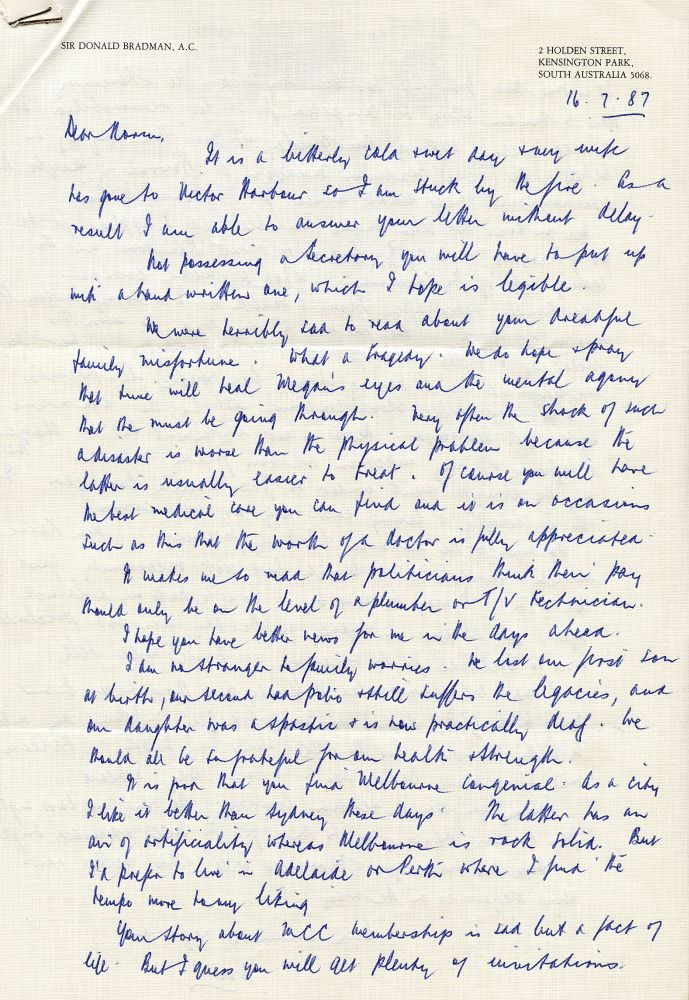 SIR DONALD BRADMAN, A.C.
2 HOLDEN STREET,
KENSINGTON PARK,
SOUTH AUSTRALIA 5068.
16.7.87
Dear
It is a bitterly cold & wet day & my wife
has gone to Victor Harbour so I am stuck by the fire. As a
result I am able to answer your letter without delay.
Not possessing a Secretary you will have to put up
with a hand written one, which I hope is legible.
We were terribly sad to read about your dreadful
family misfortune. What a tragedy. We do hope & pray
that time will heal Megan's eyes and the mental agony
that she must be going through. Very often the shock of such
a disaster is worse than the physical problem because the
latter is usually easier to treat. Of course you will have
the best medical care you can find and it is on occasions
such as this that the worth of a doctor is fully appreciated.
It makes me so mad that politicians think their pay
should only be on the level of a plumber or T/V technician.
I hope you have better news for me in the days ahead.
I am no stranger to family worries. We lost our first son
at birth, our second had polio & still suffers the legacies, and
our daughter was a spastic & is now practically deaf. We
should all be so grateful for our health & strength.
It is good that you find Melbourne congenial. As a city
I like it better than Sydney these days. The latter has an
air of artificiality whereas Melbourne is rock solid. But
I'd prefer to live in Adelaide or Perth where I find the
tempo more to my liking
Your story about MCC membership is sad but a fact of
life. But I guess you will get plenty of invitations.